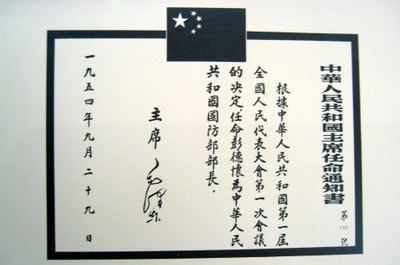 中華人民共和國主席任命通知書
第 號
根據中華人民共和國第一屆
全國人民代表大會第一次會議
的決定，任命彭德懷為中華人民
共和國國防部部長．
主席 毛澤东
一九五四年九月二十九日